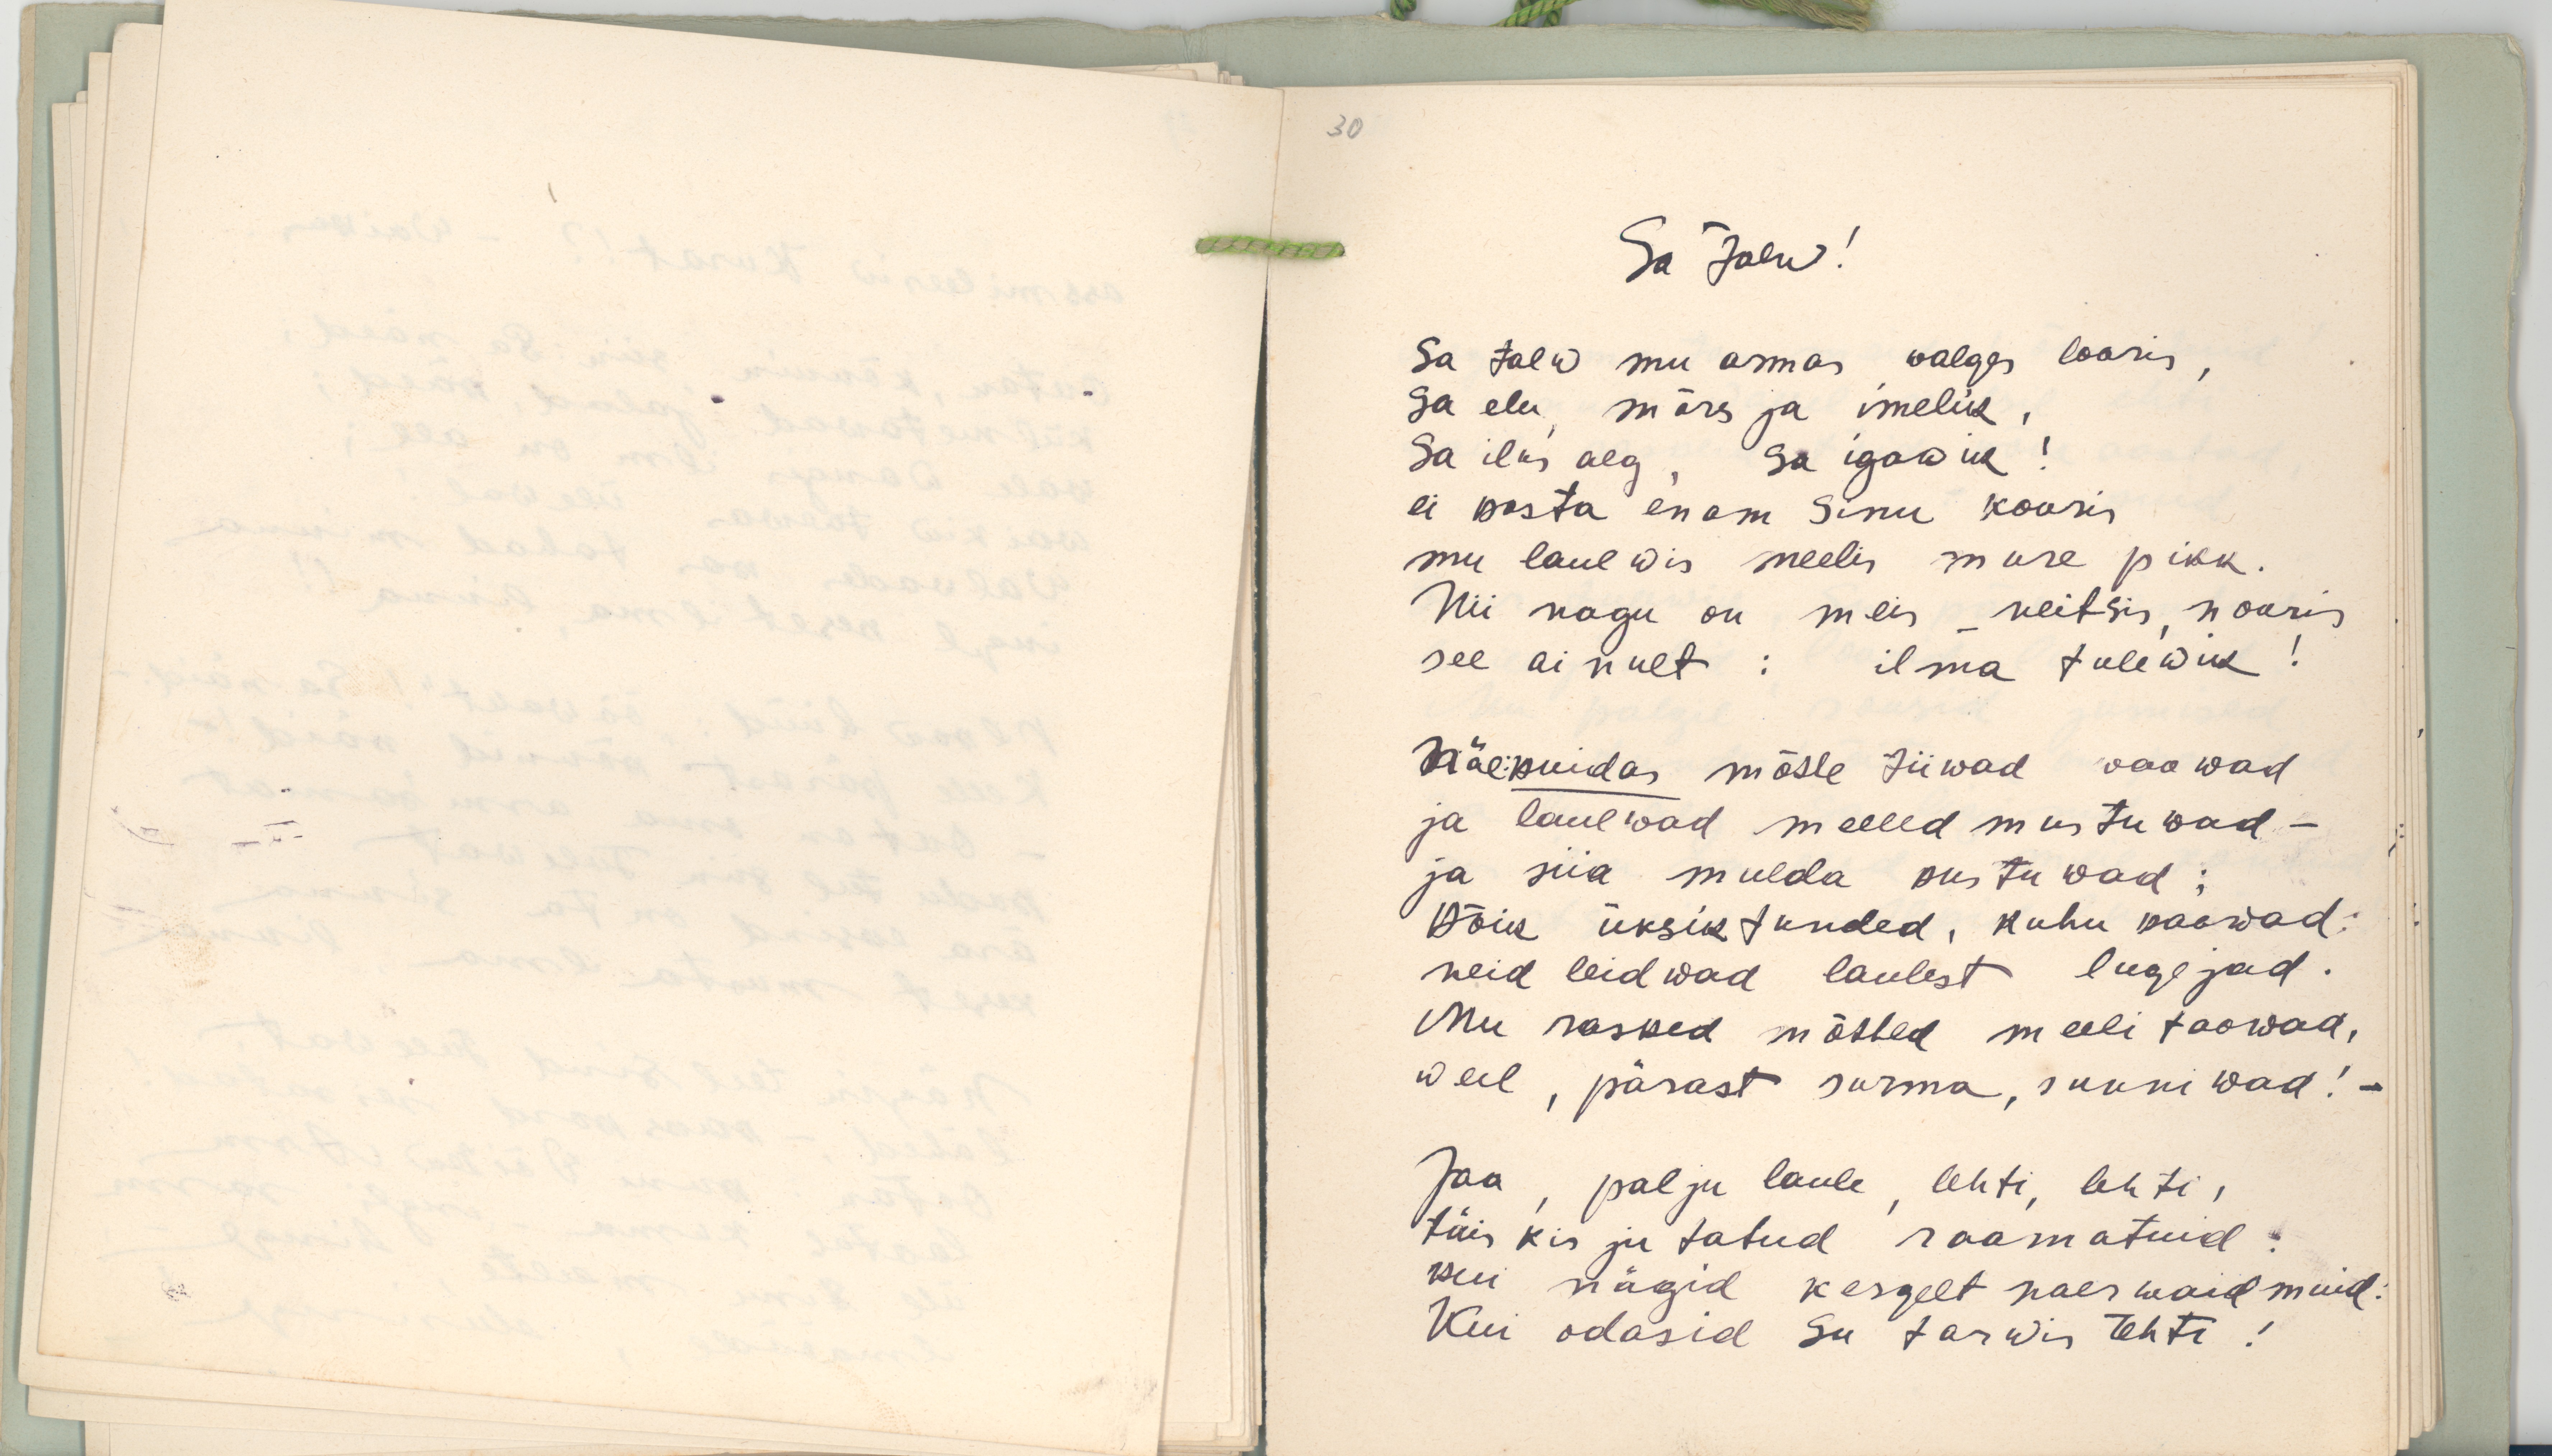 30
Sa Talw!
Sa talw mu armas walges looris,
Sa elu, mõrs ja imelik,
Sa ilus aeg, Sa igawik!
ei kosta enam Sinu kooris
mu laulwis meelis mure pikk.
Nii nagu on meis – neitsis, nooris
see ainult: ilma tulewik!
kuidas mõtle tiiwad waowad
ja laulwad meeled mustuwad –
ja siia mulda kustuwad;
Kõik üksiktunded, kuhu kaowad:
neid leidwad laulest lugejad.
Mu rasked mõtted meeli taowad,
weel, pärast surma, sunniwad! –
Jaa, palju laule, lehti, lehti,
täis kirjutatud raamatuid:
kui nägid kergelt naerwaid muid:
Kui odasid Su tarwis tehti!